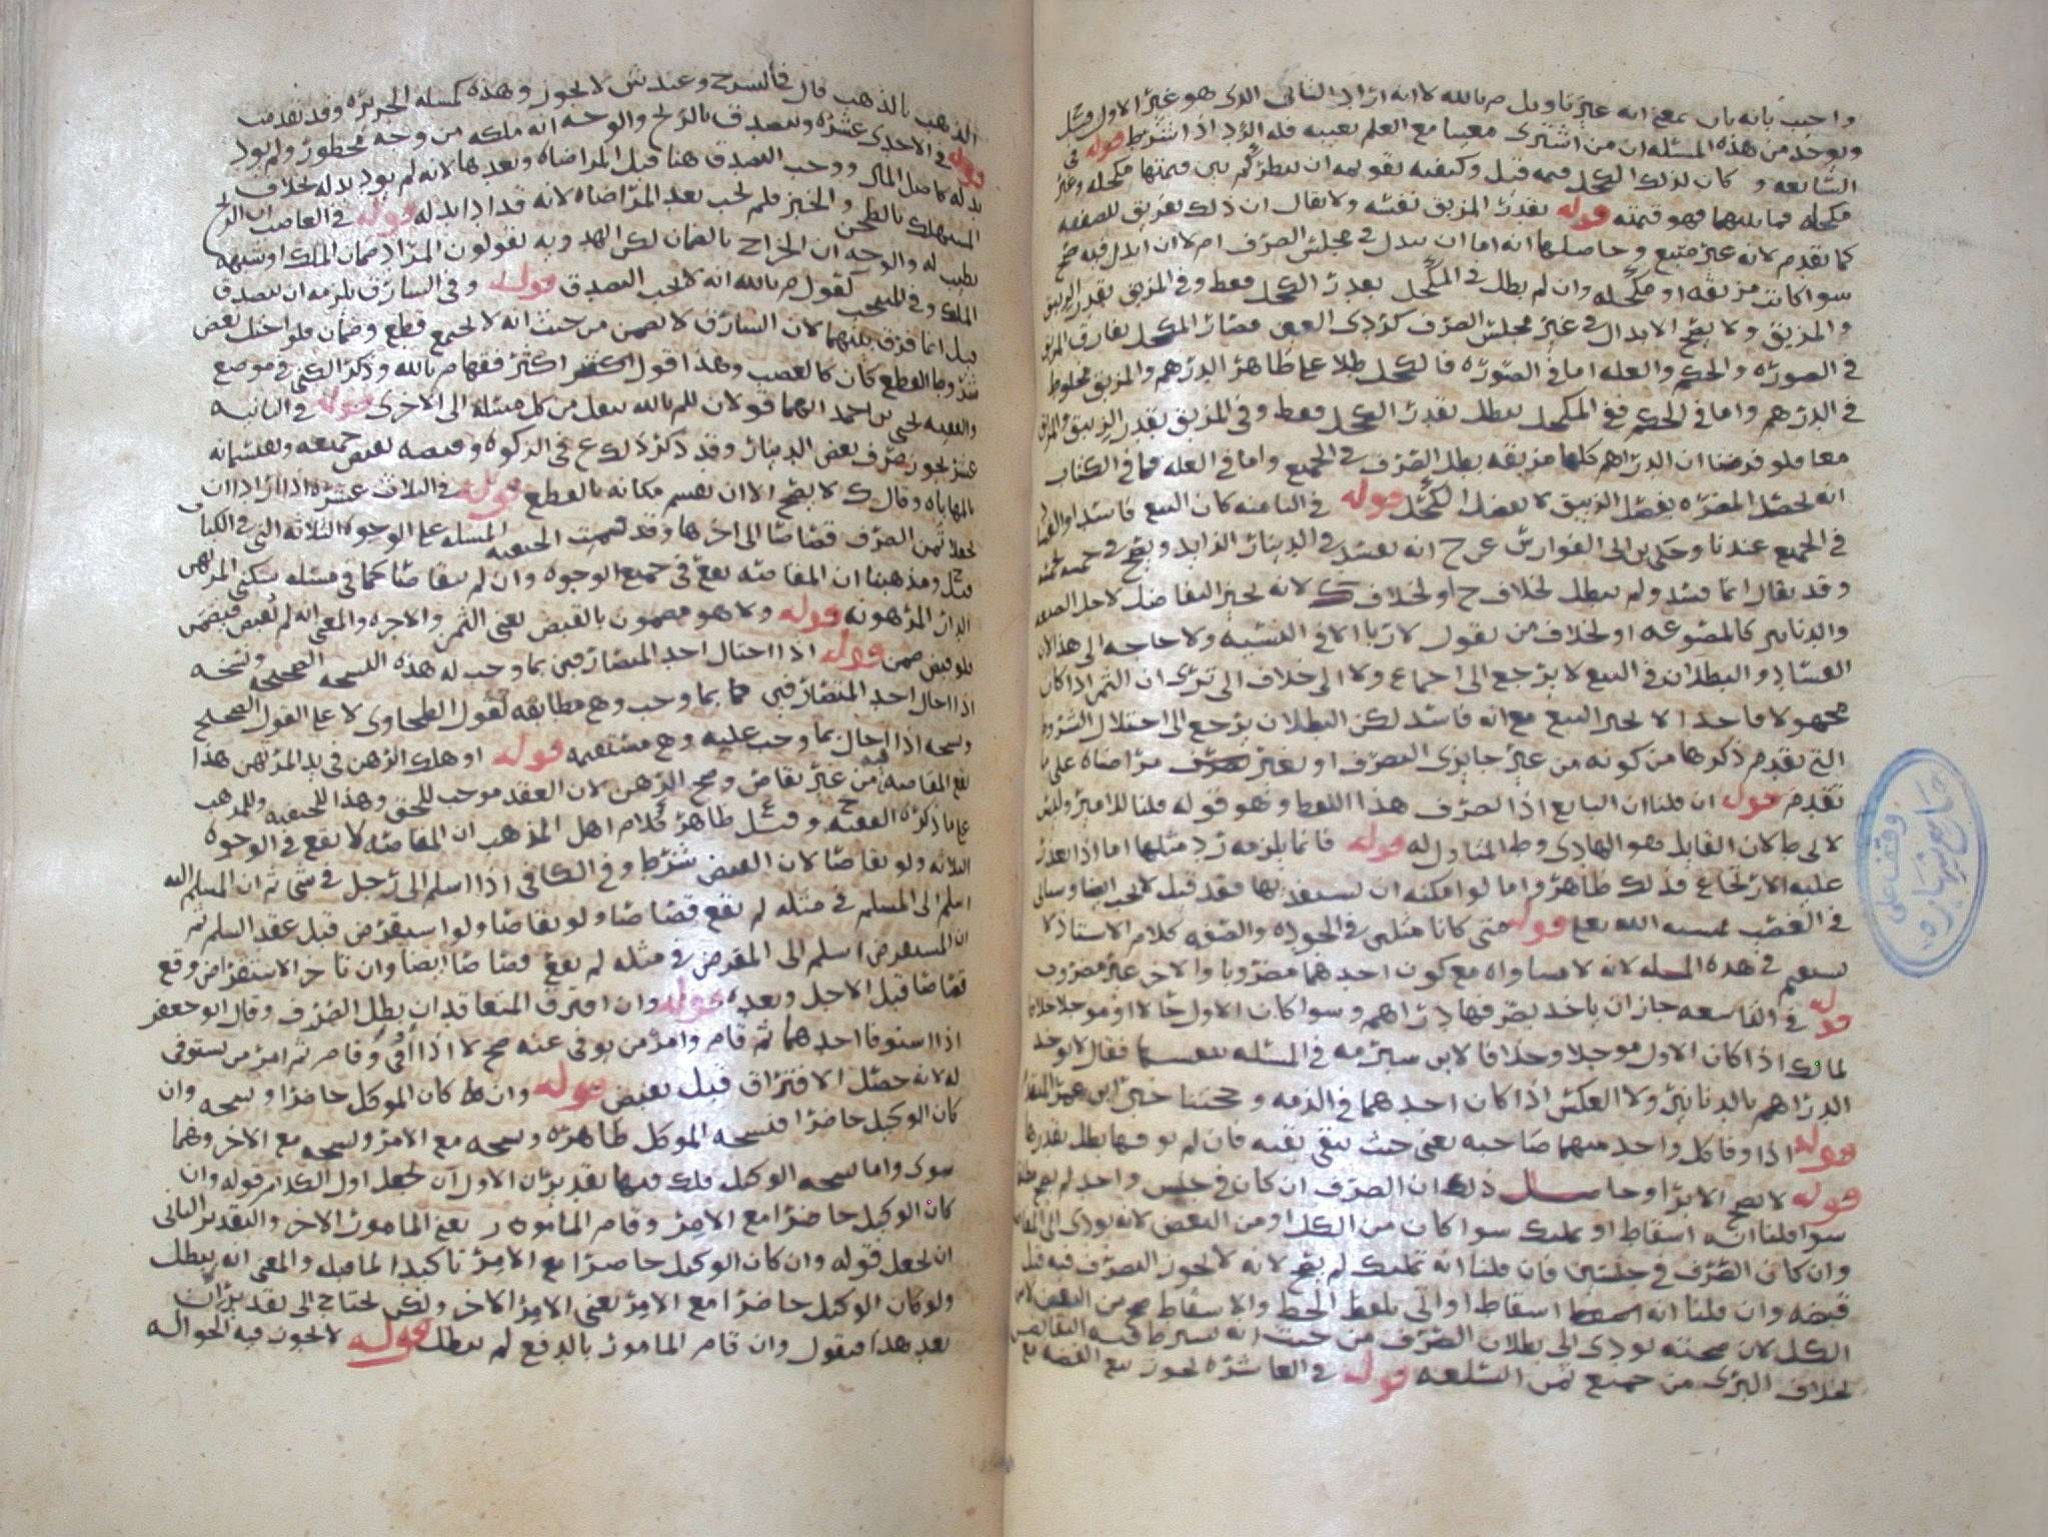 واجيب بانه باب بمعنى انه غير تاويل م بالله لانه اراد الثاني الذي هو غير الاول
ويوخذ من هذه المسئله ان من اشترى معيبا مع العلم بعيبه فله الرد اذا اشترط قوله في
السابعه وكان لذلك الكحل قيمه قيل وكيفيه تقويمه ان ينظر كم بين قيمتها مكحله وغير
مكحله فما بينهما فهو قيمته قوله بقدر المزيق نفسه ولا يقال ان ذلك تفريق للصفقه
كما تقدم لانه غير متبع وحاصلها انه اما ان يبدل في مجلس الصرف ام لا ان ابدل فيه صح
سوا كانت مزيقه او مكحله وان لم بطل في المكحل بقدر الكحل فقط وفي المزيق بقدر الزيبق
والمزيق ولا يصح الابدال في غير مجلس الصرف كردى العين فصار المكحل يفارق المزيق
في الصوره والحكم والعله اما في الصوره فالكحل طلا على ظاهر الدرهم والمزيق مخلوط
في الدرهم واما في الحكم ففي المكحل يبطل بقدر الكحل فقط وفي المزيق بقدر الزيبق والمزيق
معا فلو فرضنا ان الدراهم كلها مزيقه بطل الصرف في الجميع واما في العله فما في الكتاب
انه يحصل المضره بفصل الزيبق لا بفصل الكحل قوله في الثامنه كان البيع فاسدا
في الجميع عندنا وحكى بن ابي الفوارس عن ح انه يفسد في الدينار الزايد ويصح في خمسه بخمسه
وقد يقال انما فسد ولم يبطل لخلاف ح او لخلاف ك لانه يجيز التفاضل لاجل الصنعه
والدنانير كالمصنوعه او لخلاف من يقول لا ربا الا في النسيه ولا حاجه الى هذا لان
الفساد والبطلان في البيع لا يرجع الى اجماع ولا الى خلاف الى ترى ان الثمن اذا كان
مجهولا فاحدا لا يجيز البيع مع انه فاسد لكن البطلان يرجع الى اختلال الشروط
التي تقدم ذكرها من كونه من غير جايزى التصرف او بغير مراضاه على ما
تقدم قوله ان قلنا ان البايع اذا لصرف هذا اللفظ وهو قوله قلنا للامير
لا لى ط لان القايل هو الهادى وط المتاول له قوله فانما يلزمه رد مثلها اما اذا تعذر
عليه الارتجاع فذلك ظاهر واما لو امكنه ان يستفديها فقد قيل لا يجب ايضا وسياتى
في الغصب بمشيه الله تعلى قوله متى كانا مثلين في الجوده والصفه كلام الاستاذ لا
يستقيم في هذه المسله لانه لا مساواه مع كون احدهما مضروبا والاخر غير مضروب
قوله في التاسعه جاز ان ياخذ بصرفها دراهم وسوا كان الاول حالا او موجلا خلافا
لمالك اذا كان الاول موجلا وخلافا لابن شبرمه في المسئله بنفسها فقال لا يوخذ
الدراهم بالدنانير ولا العكس اذا كان احدهما في الذمه وحجتنا خبر ابن عمر
قوله اذا وفا كل واحد منهما صاحبه يعنى حيث تبقى بقيه فان لم يوفيها بطل بقدرها
قوله لا يصح الابرا وحاصل ذلك ان الصرف ان كان في جنس واحد لم يصح
سوا قلنا انه اسقاط او تمليك سوا كان من الكل او من البعض لانه يودى الى
وان كان الصرف في جنسين فان قلنا انه تمليك لم يصح لانه لا يجوز التصرف فيه قبل
قبضه وان قلنا انه اسقاط او اتى بلفظ الحط والاسقاط صح من البعض لا من
الكل لان صحته يودى الى بطلان الصرف من حيث انه يشترط فيه التقابض
بخلاف البرى من جميع ثمن السلعه قوله في العاشره يجوز بيع الفضه مع
وقف على
جامع شهاره
الذهب بالذهب قال في الشرح وعند ش لا يجوز وهذه كمسله الجريره وقد تقدمت
قوله في الاحدى عشره ويتصدق بالربح والوجه انه ملكه من وجه محظور ولم يود
بدله كاصل المال ووجب التصدق هنا قبل المراضاه وبعدها لانه لم يود بدله بخلاف
المستهلك بالطحن والخبز فلم يجب بعد المراضاه لانه قد ادا بدله قوله في الغاصب ان الربح
يطيب له والوجه ان الخراج بالضمان لكن الهدويه يقولون المراد ضمان الملك او شبهه
الملك وفي المنتخب كقول م بالله انه لا يجب التصدق قوله وفي السارق يلزمه ان يتصدق
قيل انما فرق بينهما لان السارق لا يضمن من حيث انه لا يجتمع قطع وضمان فلو اختل بعض
شروط القطع كان كالغصب وهذا قول اكثر فقها م بالله وذكر الكنى في موضع
والفقيه يحيى بن احمد انهما قولان للم بالله ينقل من كل مسئله الى الاخرى قوله في الثانيه
عشر يجوز صرف بعض الدينار وقد ذكر ذلك ع في الزكوه وقبضه بقبض جميعه ويقتسمانه
بالمهاياه وقال ك لا يصح الا ان يقسم مكانه بالقطع قوله في الثالث عشره اذا ارادا ان
يجعلا ثمن الصرف قصاصا الى اخرها وقد قسمت الحنفيه المسئله على الوجوه الثلاثه التي في الكتاب
قيل ومذهبنا ان المقاصه يقع في جميع الوجوه وان لم يتقاصا كما في مسئله سكنى المرتهن
الدار المرهونه قوله ولا هو مضمون بالقبض يعنى الثمن والاجره والمعنى انه لم يقبض فيضمن
فلو قبض ضمن قوله اذا احتال احد المتصارفين بما وجب له هذه النسخه الصحيحه ونسخه
اذا احال احد المتصارفين بما وجب وهى مطابقه لقول الطحاوى لا على القول الصحيح
ونسخه اذا احال بما وجب عليه وهى مستقيمه قوله او هلك الرهن في يد المرتهن هذا
يقع المقاصه فيه من غير تقاص وصح الرهن لان العقد موجب للحق وهذا للحنفيه وللمذهب
على ما ذكره الفقيه ح وقيل ع ظاهر كلام اهل المذهب ان المقاصه لا يقع في الوجوه
الثلاثه ولو تقاصا لان القبض شرط وفي الكافى اذا اسلم الى رجل في شى ثم ان المسلم اليه
اسلم الى المسلم في مثله لم يقع قصاصا ولو تقاصا ولو استقرض قبل عقد السلم ثم
ان المستقرض اسلم الى المقرض في مثله لم يقع قصاصا ايضا وان تاخر الاستقراض وقع
قصاصا قبل الاجل وبعده قوله وان افترق المتعاقدان بطل الصرف وقال ابو جعفر
اذا استوفا احدهما ثم قام وامر من يوفى عنه صح لا اذا اوفى وقام ثم امر من يستوفى
له لانه حصل الافتراق قبل بقبض قوله وان كان الموكل حاضرا ونسخه وان
كان الوكيل حاضرا فنسخه الموكل ظاهره ونسخه مع الامر ونسخه مع الاخر وهما
سوى واما نسخه الوكيل فلك فيها تقديران الاول ان يجعل اول الكلام قوله وان
كان الوكيل حاضرا مع الامر وقام المامور يعنى المامور الاخر والتقدير الثانى
ان يجعل قوله وان كان الوكيل حاضرا مع الامر تاكيدا لما قبله والمعنى انه يبطل
ولو كان الوكيل حاضرا مع الامر يعنى الامر الاخر ولكن يحتاج الى تقدير ان
بعد هذا فيقول وان قام المامور بالدفع لم يبطل قوله لا يجوز فيه الحواله